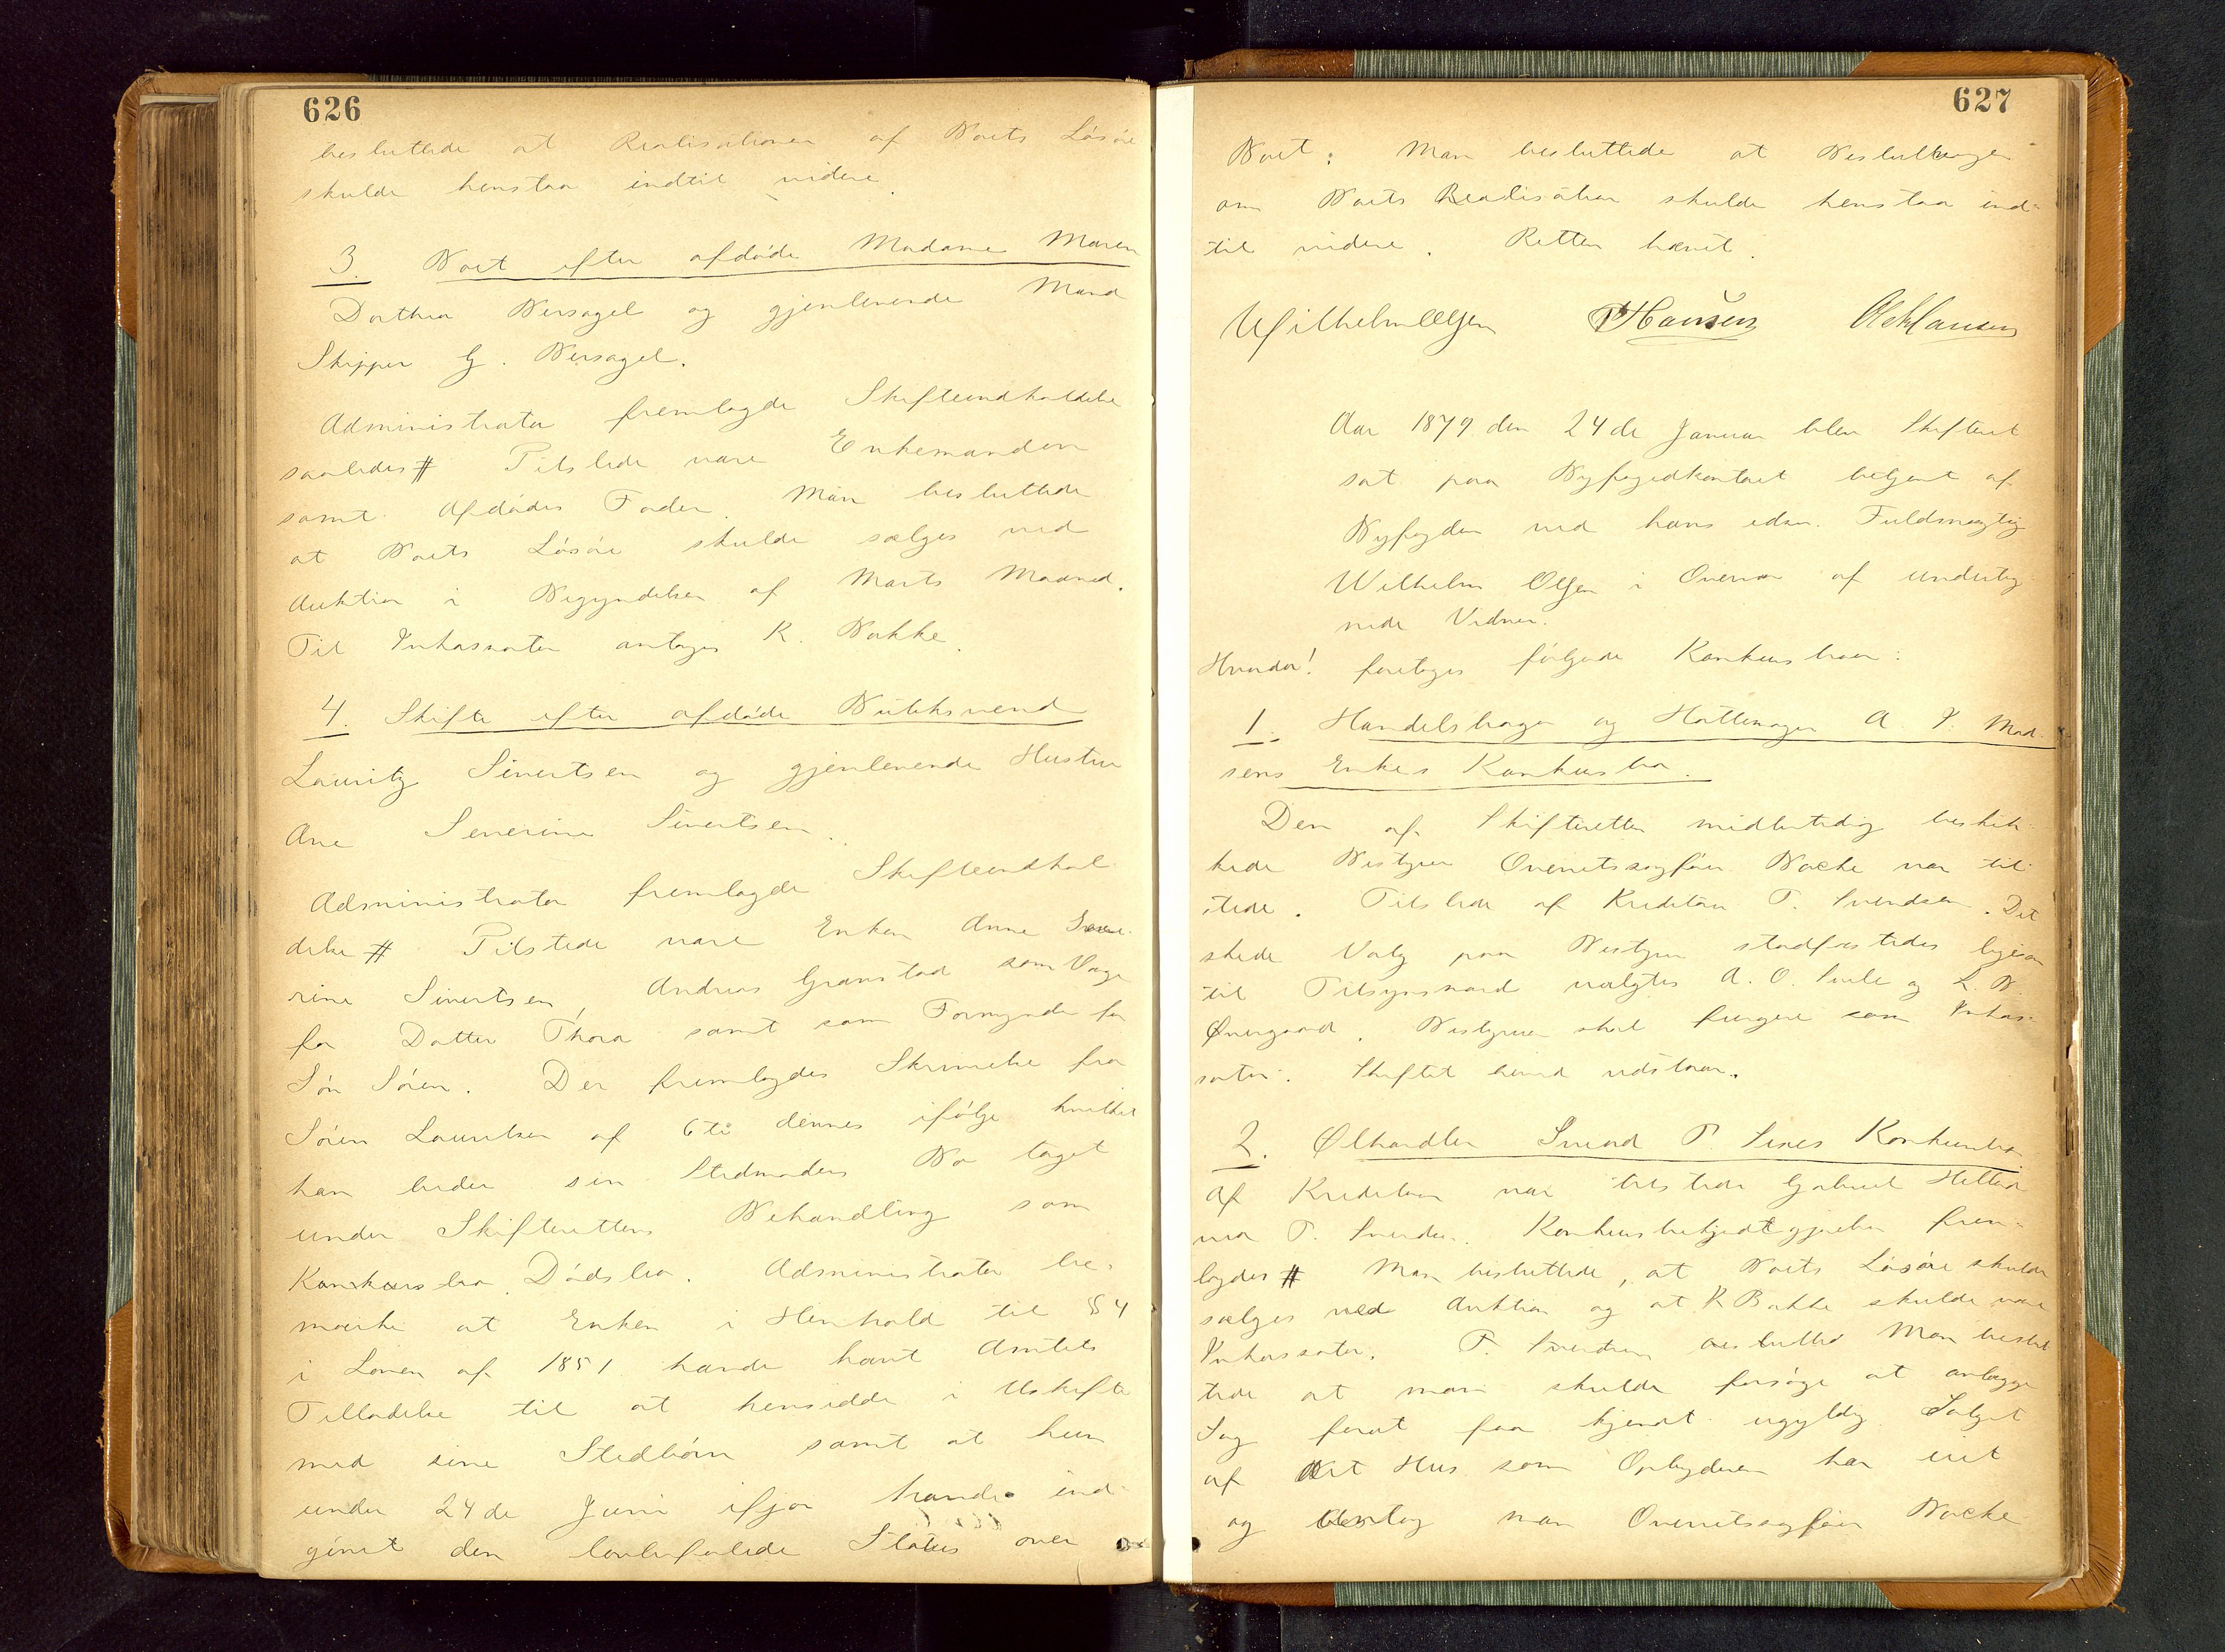 626
besluttede at Realisationen af Boets Løsøre
skulde henstaa indtil videre.
3. Boet efter afdøde Madame Maren
Dorthea Bersagel og gjenlevende Mand
Skipper G. Bersagel.
Administrator fremlagde Skifteindkaldelse
saaledes # Tilstede vare Enkemanden
samt Afdødes Fader. Man besluttede
at Boets Løsøre skulde sælges ved
Auktion i Begyndelsen af Marts Maaned.
Til Inkassator antoges K. Bakke.
4. Skifte efter afdøde Butiksvend
Lauritz Sivertsen og gjenlevende Hustru
Ane Severine Sivertsen.
Administrator fremlagde Skifteindkal
delse # Tilstede vare Enken Anne Seve-
rine Sivertsen, Andreas Gramstad som Værge
for Datter Thora samt som Formynder for
Søn Søren. Der fremlagdes Skrivelse fra
Søren Lauritsen af 6te dennes ifølge hvilket
han beder sin Stedmoders Bo taget
under Skifterettens Behandling som
Konkursbo Dødsbo. Administrator be-
mærke at Enken i Henhold til § 4
i Loven af 1851 havde havt Amtets
Tilladelse til at hensidde i Uskifte
med sine Stedbørn samt at hun
under 24de Juni ifjor havde ind-
givet den lovbefalede Status over
627
Boet; Man besluttede at Beslutningen
om Boets Realisation skulde henstaa ind-
til videre. Retten hævet.
Wilhelm Olsen PHansen OleHansen
Aar 1879 den 24de Januar blev Skifteret
sat paa Byfogedkontoret betjent af
Byfogden ved hans edsv. Fuldmægtig
Wilhelm Olsen i Overvær af underteg
nede Vidner.
Hvorda! foretoges følgende Konkursboer:
1. Handelsborger og Hattemager A. P. Mad-
sens Enkes Konkursbo.
Den af Skifteretten midlertidig beskik-
kede Bestyrer Overretssagfører Backe var til-
stede. Tilstede af Kreditorer T. Svendsen. Det
skede Valg paa Bestyrer stadfæstedes ligesom
til Tilsynsmænd valgtes A. O. og L. B.
Øvregaard. Bestyreren skal fungere som Inkas-
sator. Skiftet herved udstaar.
2. Ølhandler Sivert T. Konkursbo
Af Kreditorer var tilstede Gabriel
ved T. Svendsen. Konkursbekjendtgjørelse frem-
lagdes # Man besluttede, at Boets Løsøre skulde
sælges ved Auktion og at K Bakke skulde være
Inkassator. T. Svendsen Man beslut
tede at man skulde forsøge at anlægge
Sag forat faa kjendt ugyldig Salget
af det Hus som Opbyderen har eiet
og antog man Overretssagfører Backe